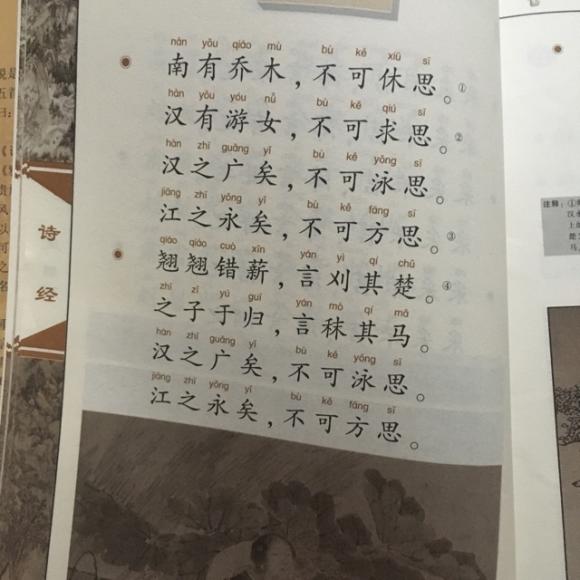 nán yǒu qiáo mù bù kě xiū sī
南有乔木，不可休思。①
hàn yǒu yóu nǚ bù kě qiú sī
汉有游女，不可求思。②
hàn zhī guǎng yǐ bù kě yǒng sī
汉之广矣，不可泳思。
jiāng zhī yǒng yǐ bù kě fāng sī
江之永矣，不可方思。③
qiáo qiáo cuò xīn yán yì qí chǔ
翘翘错薪，言刈其楚。④
zhī zǐ yú guī yán mò qí mǎ
之子于归，言秣其马。
hàn zhī guǎng yǐ bù kě yǒng sī
汉之广矣，不可泳思。
jiāng zhī yǒng yǐ bù kě fāng sī
江之永矣，不可方思。
诗
经
注释：①
汉
上
楚
马
说是
五首
曰：
风
以
可
之
名